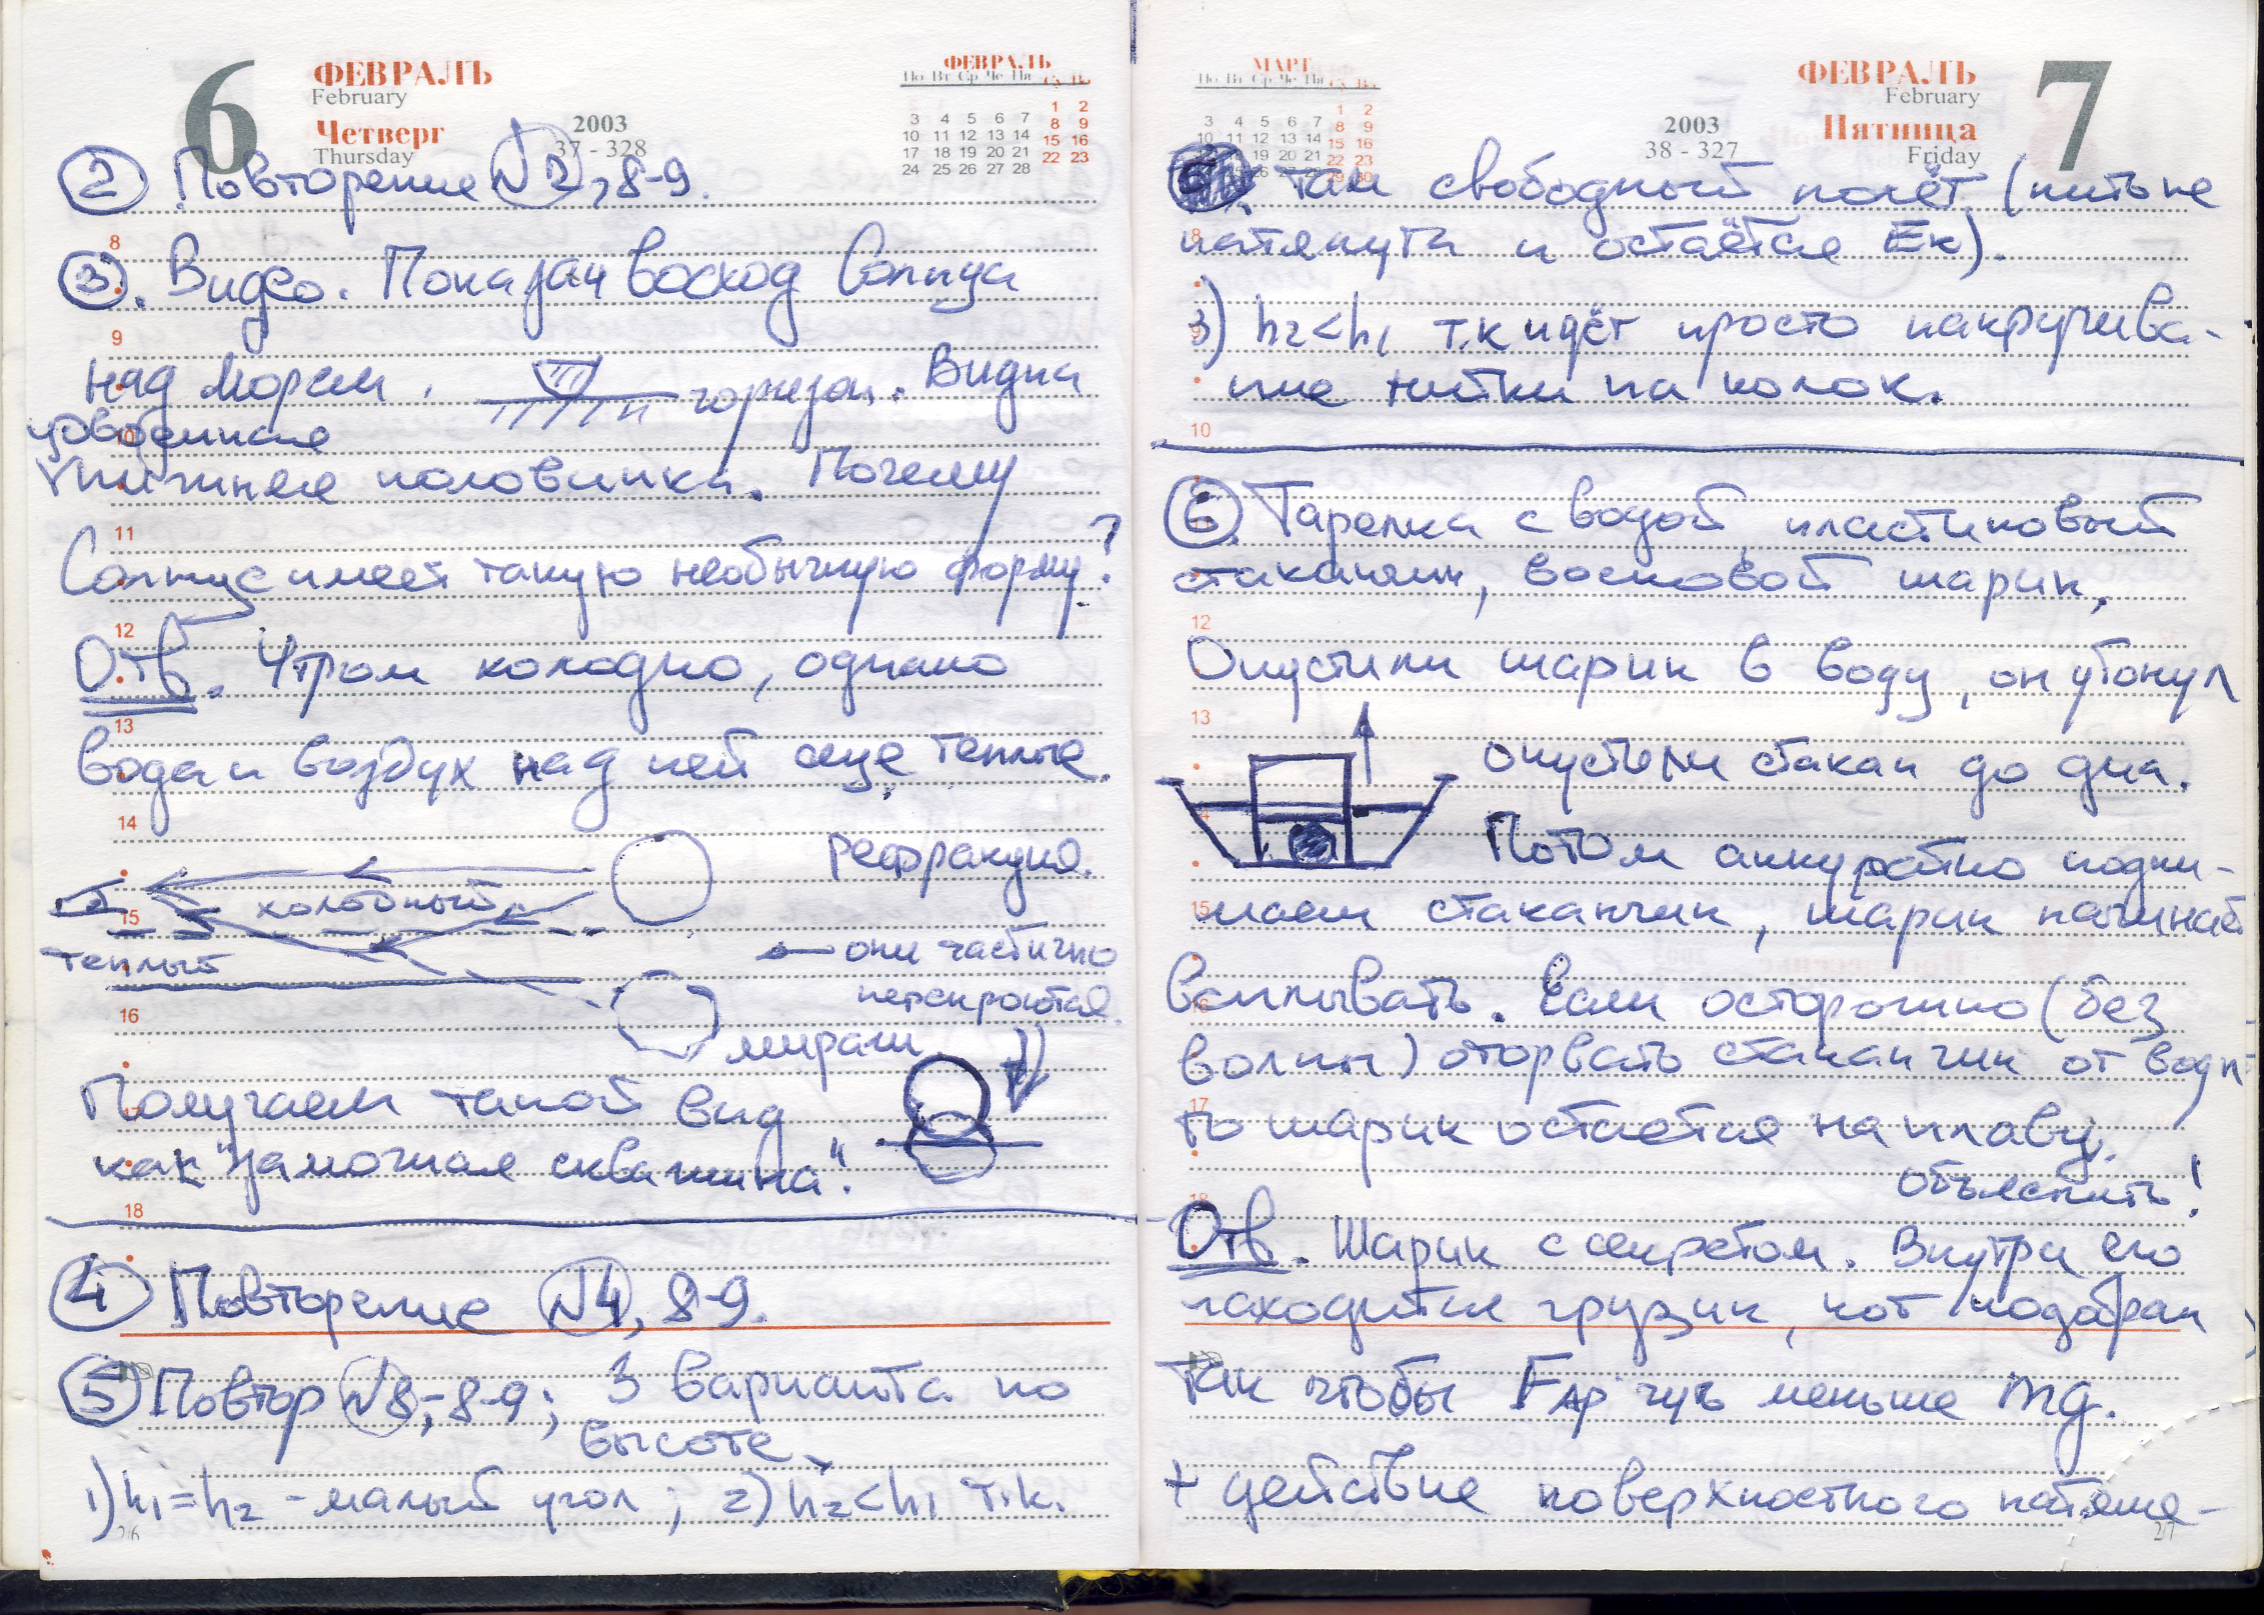 6
ФЕВРАЛЬ
February
Четверг
Thursday
2003
37 - 328
ФЕВРАЛЬ
По Вт Ср Че Пя Су Во
1 2
3 4 5 6 7 8 9
10 11 12 13 14 15 16
17 18 19 20 21 22 23
24 25 26 27 28
② Повторение №2, 8-9.
8
③. Видео. Показан восход Солнца
9
над морем. горизон. Видна
10
удвоенная
нижняя половинка. Почему
11
Солнце имеет такую необычную форму?
12
Отв. Утром холодно, однако
13
вода и воздух над ней еще теплые.
14
рефракция.
холодный
15
теплый
они частично
перекроются.
16
мираж
Получаем такой вид
17
как "замочная скважина".
18
④ Повторение №4, 8-9.
⑤ Повтор №8, -8-9; 3 варианта по
высоте
1) h1=h2 - малый угол; 2) h2<h1 т.к.
26
МАРТ
По Вт Ср Че Пя Су Во
1 2
3 4 5 6 7 8 9
10 11 12 13 14 15 16
19 20 21 22 23
26 27 28 29 30
2003
38 - 327
ФЕВРАЛЬ
February
Пятница
Friday
7
там свободный полёт (нить не
8
натянута и остаётся Ек).
9
3) h2<h1 т.к идёт просто накручива-
ние нитки на колок.
10
⑥. Тарелка с водой, пластиковый
11
стаканчик, восковой шарик.
12
Опустили шарик в воду, он утонул
13
опустили стакан до дна.
14
Потом аккуратно подни-
15
маем стаканчик, шарик начинает
всплывать. Если осторожно (без
16
волны) оторвать стаканчик от воды
17
то шарик остаётся на плаву.
Объяснить!
18
Отв. Шарик с секретом. Внутри его
находится грузик, кот подобран
так чтобы FАр чуть меньше mg.
+ действие поверхностного натяже-
27